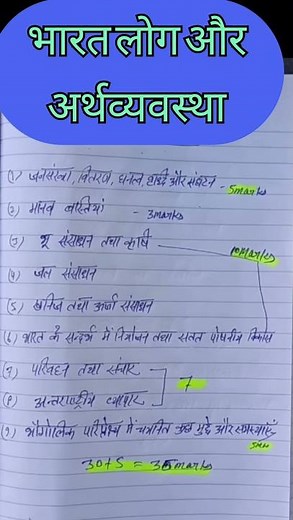 भारत लोग और
अर्थव्यवस्था
(1) जनसंख्या, वितरण, घनत्व, वृद्धि और संघटन - 5marks
(2) मानव बस्तियां - 3marks
(3) भू संसाधन तथा कृषि 10marks
(4) जल संसाधन
(5) खनिज तथा ऊर्जा संसाधन
(6) भारत के सन्दर्भ में नियोजन तथा सतत पोषणीय विकास
(7) परिवहन तथा संचार
7
(8) अन्तराष्ट्रीय व्यापार
(9) भौगोलिक परिप्रेक्ष्य में चयनित कुछ मुद्दे और समस्याएँ
30+5 = 35marks